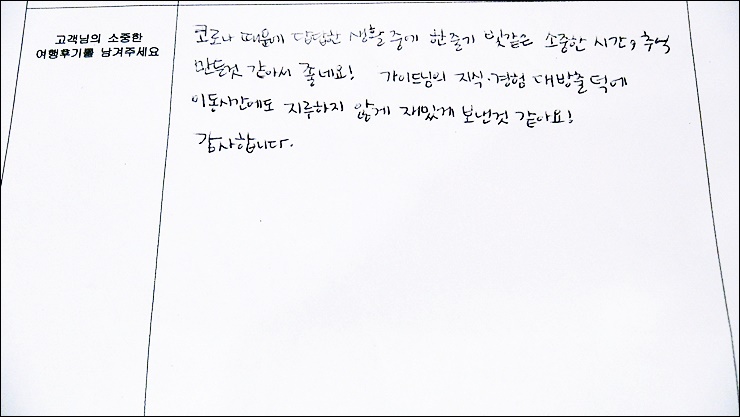 고객님의 소중한
여행후기를 남겨주세요
코로나 때문에 답답한 생활 중에 한줄기 빛같은 소중한 시간, 추억
만든것 같아서 좋네요! 가이드님의 지식·경험 대방출 덕에
이동시간에도 지루하지 않게 재밌게 보낸것 같아요!
감사합니다.